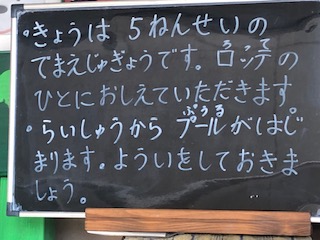 ・きょうは 5ねんせいの
でまえじゅぎょうです。ロッテの
ろって
ひとにおしえていただきます
・らいしゅうから プールがはじ
ぷうる
まります。よういをしておきま
しょう。